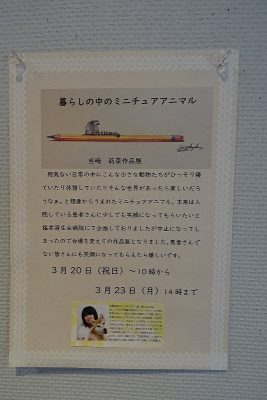 暮らしの中のミニチュアアニマル
吉崎 莉菜作品展
何気ない日常の中にこんな小さな動物たちがひっそり寝
ていたり休憩していたりそんな世界があったら楽しいだろ
うなぁ。と想像からうまれたミニチュアアニマル。本来は入
院している患者さんに少しでも笑顔になってもらいたいと
福井済生会病院にて企画しておりましたが中止になってし
まったので会場を変えての作品展となりました。患者さんで
ない皆さんにも笑顔になってもらえたら嬉しいです。
3月20日(祝日)~10時から
3月23日(月)14時まで